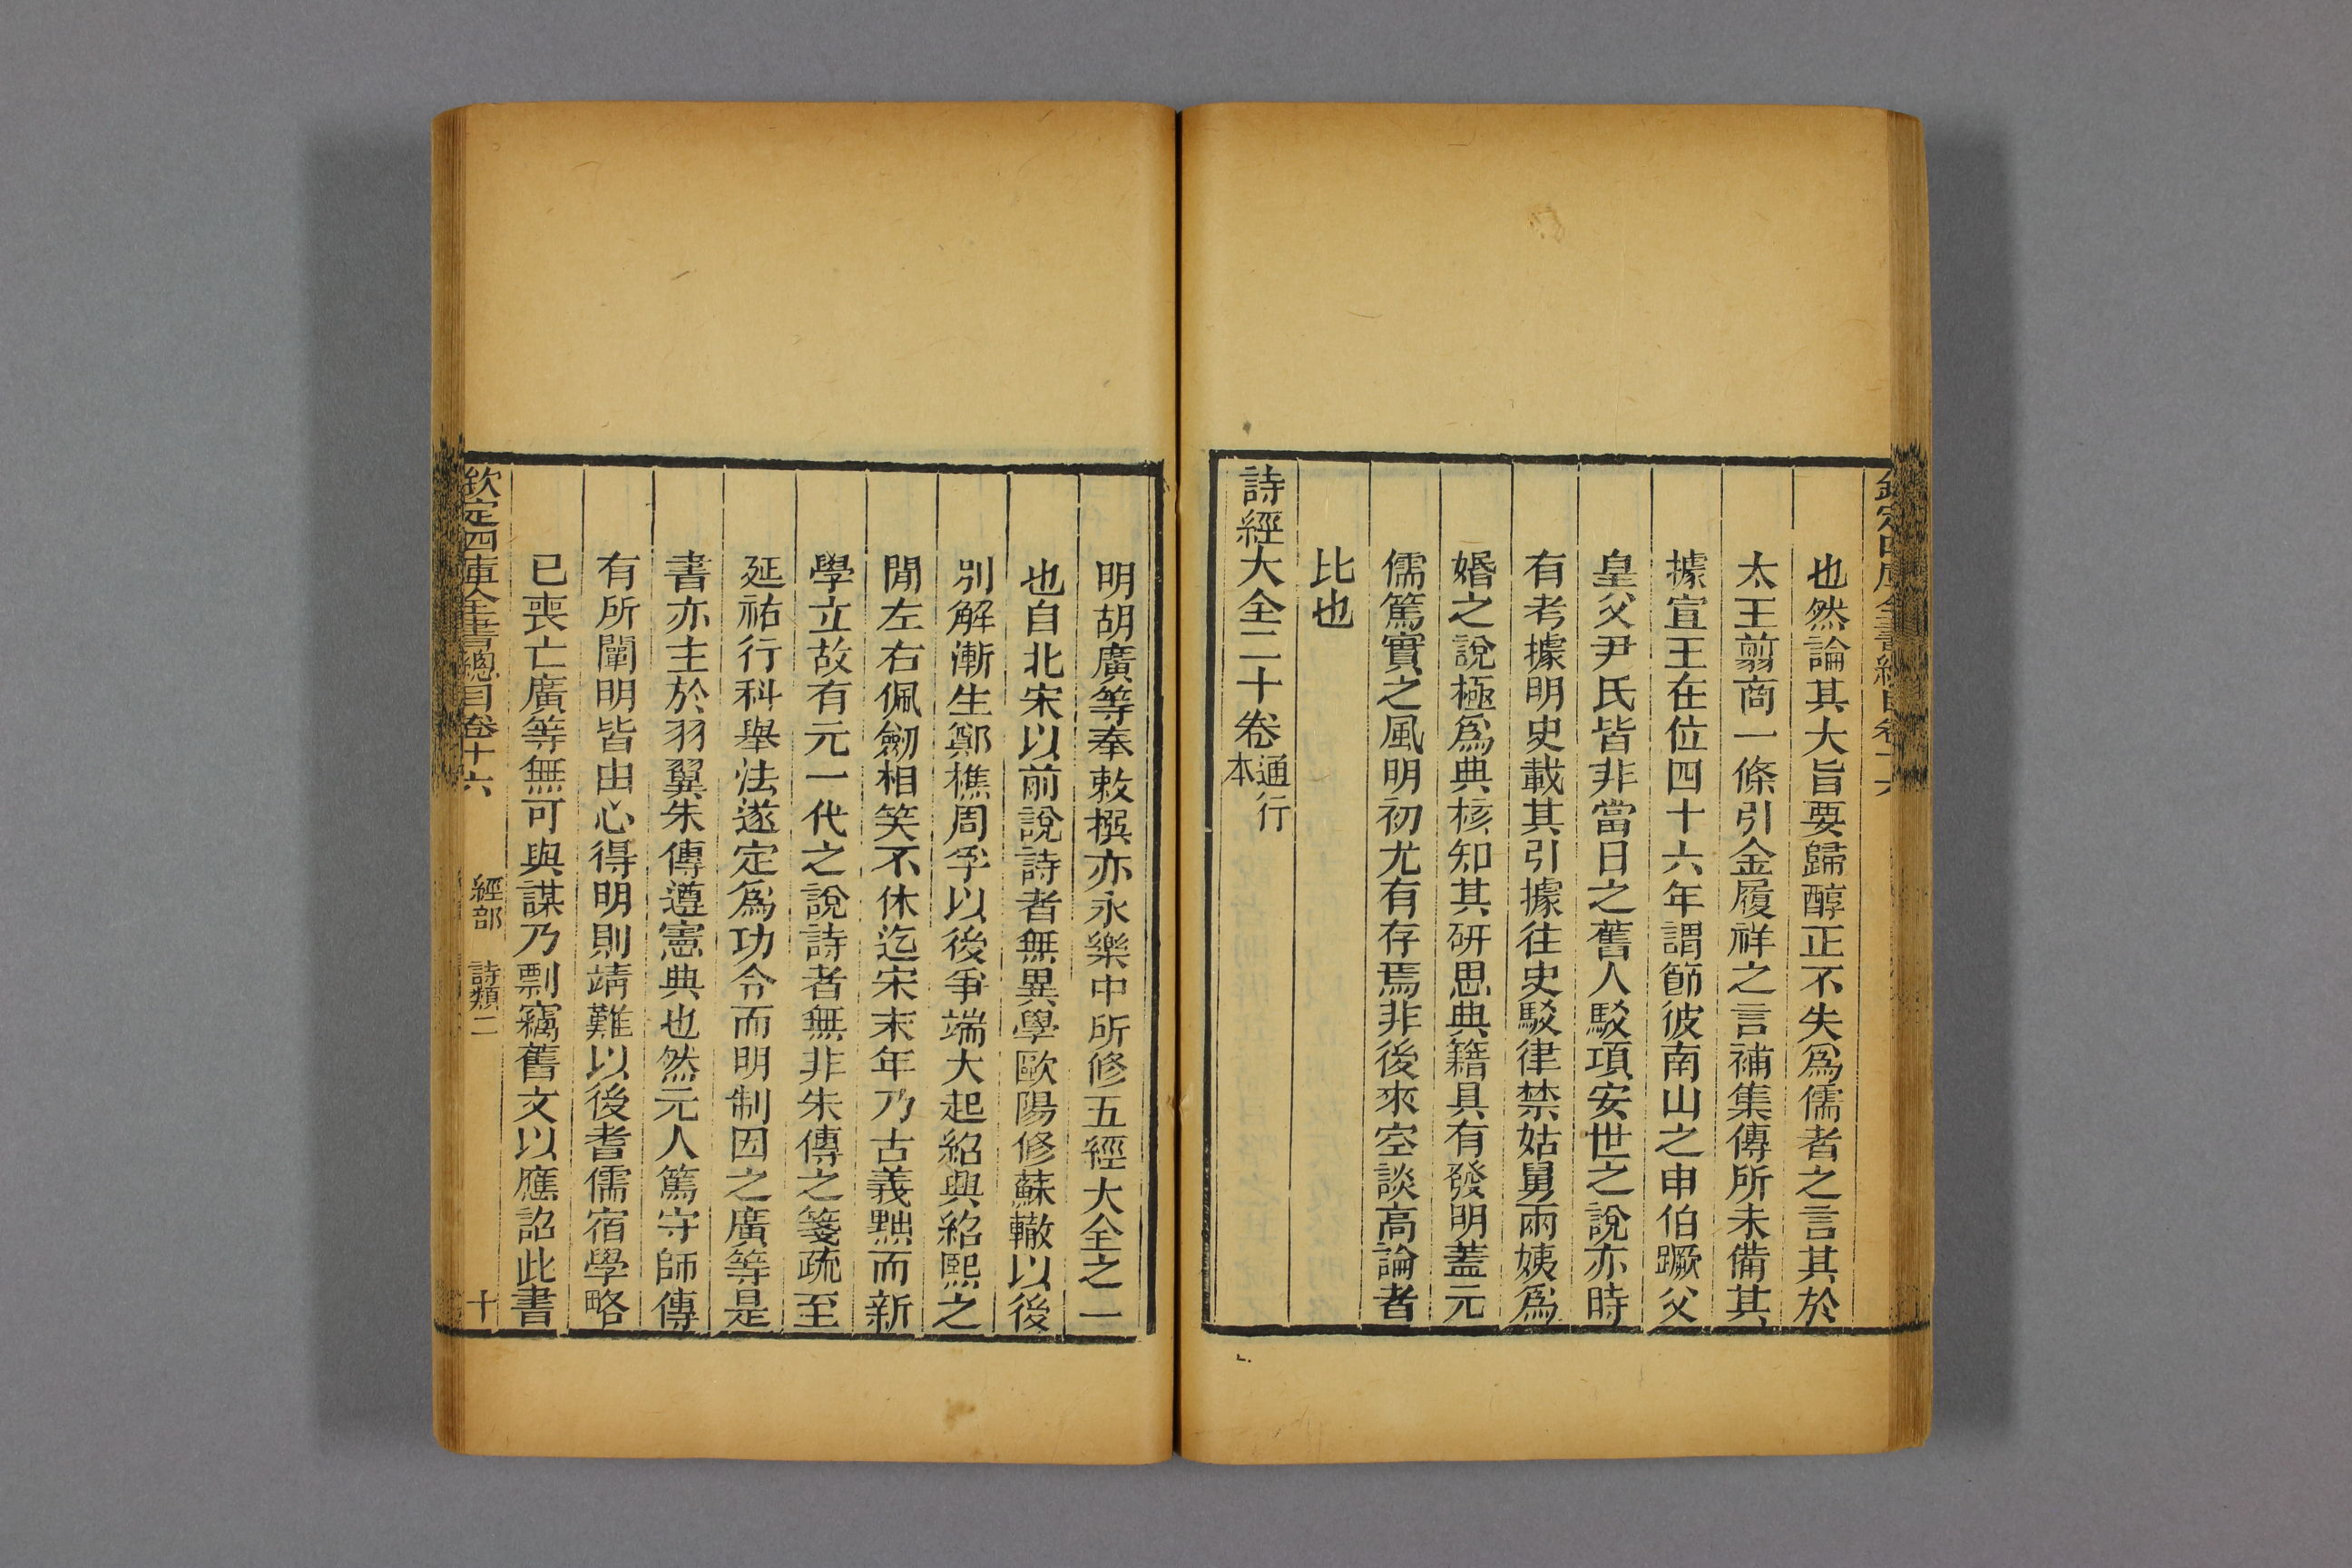 欽定四庫全書總目卷十六
也然論其大旨要歸醇正不失爲儒者之言其於
太王翦商一條引金履祥之言補集傳所未備其
據宣王在位四十六年謂節彼南山之申伯蹶父
皇父尹氏皆非當日之舊人駁項安世之說亦時
有考據明史載其引據往史駁律禁姑舅兩姨爲
婚之說極爲典核知其研思典籍具有發明蓋元
儒篤實之風明初尤有存焉非後來空談高論者
比也
詩經大全二十卷通行本
明胡廣等奉敕撰亦永樂中所修五經大全之一
也自北宋以前說詩者無異學歐陽修蘇轍以後
別解漸生鄭樵周孚以後爭端大起紹興紹熙之
閒左右佩劒相笑不休迄宋末年乃古義黜而新
學立故有元一代之說詩者無非朱傳之箋疏至
延祐行科舉法遂定爲功令而明制因之廣等是
書亦主於羽翼朱傳遵憲典也然元人篤守師傳
有所闡明皆由心得明則靖難以後耆儒宿學略
已喪亡廣等無可與謀乃剽竊舊文以應詔此書
欽定四庫全書總目卷十六 經部 詩類二 十